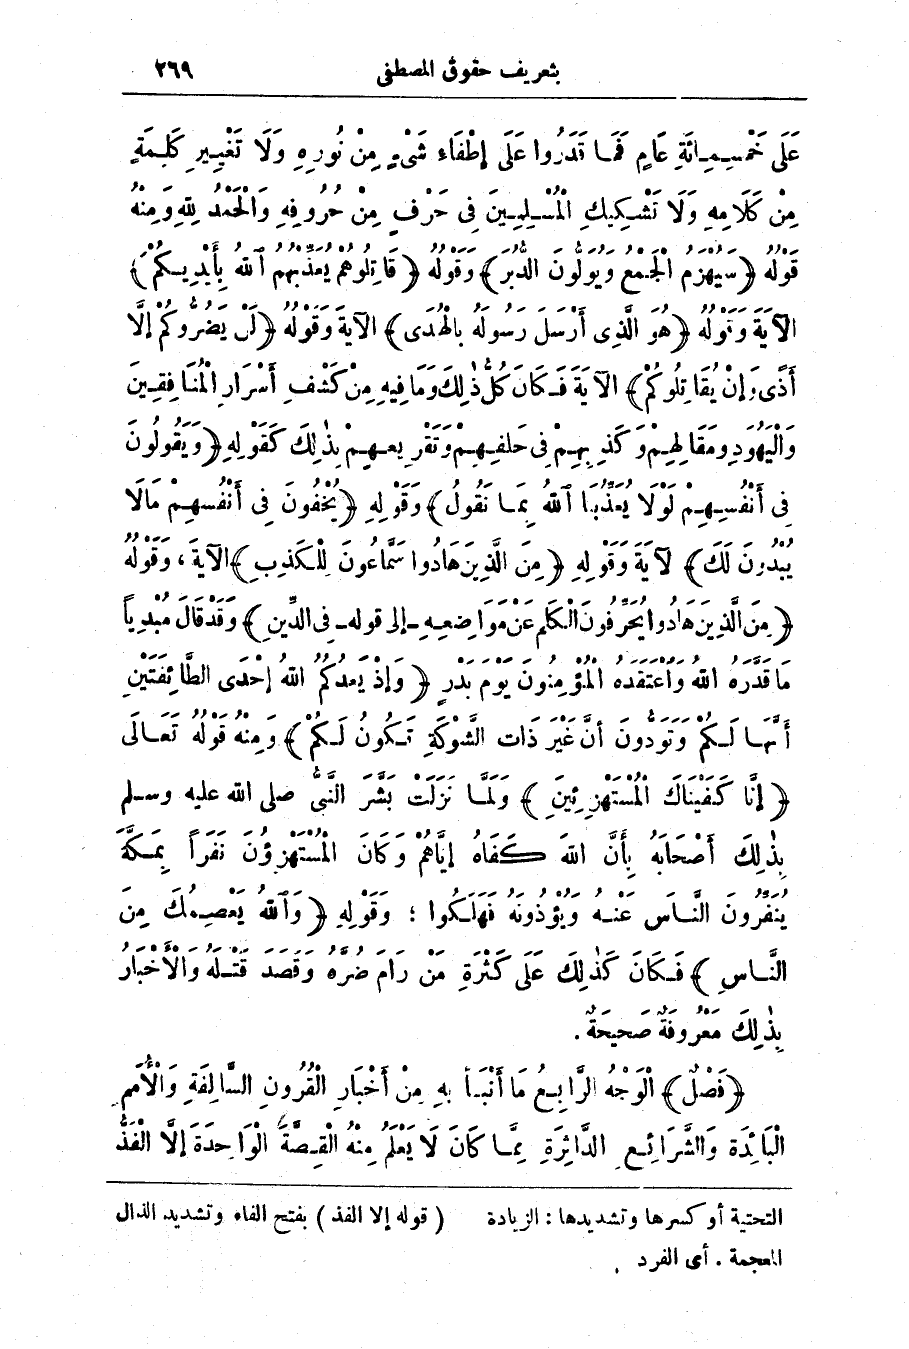 بتعريف حقوق المصطفى ٢٦٩
عَلَى خَمْسِمِائَةِ عَامٍ فَمَا قَدَرُوا عَلَى إِطْفَاءِ شَىْءٍ مِنْ نُورِهِ وَلَا تَغْيِيرِ كَلِمَةٍ
مِنْ كَلَامِهِ وَلَا تَشْكِيكِ الْمُسْلِمِينَ فِى حَرْفٍ مِنْ حُرُوفِهِ وَالْحَمْدُ لِلهِ وَمِنْهُ
قَوْلُهُ ﴿سَيُهْزَمُ الْجَمْعُ وَيُوَلُّونَ الدُّبُرَ﴾ وَقَوْلُهُ ﴿قَاتِلُوهُمْ يُعَذِّبْهُمُ ٱللهُ بِأَيْدِيكُمْ﴾
الآيَةَ وَقَوْلُهُ ﴿هُوَ الَّذِى أَرْسَلَ رَسُولَهُ بِالْهُدَى﴾ الآيَةَ وَقَوْلُهُ ﴿لَنْ يَضُرُّوكُمْ إلَّا
أَذًى وَإِنْ يُقَاتِلُوكُمْ﴾ الآيَةَ فَكَانَ كُلُّ ذٰلِكَ وَمَا فِيهِ مِنْ كَشْفِ أَسْرَارِ الْمُنَافِقِينَ
وَالْيَهُودِ وَمَقَالِهِمْ وَكَذِبِهِمْ فِى حَلِفِهِمْ وَتَقْرِيعِهِمْ بِذٰلِكَ كَقَوْلِهِ ﴿وَيَقُولُونَ
فِى أَنْفُسِهِمْ لَوْلَا يُعَذِّبُنَا ٱللهُ بِمَا نَقُولُ﴾ وَقَوْلِهِ ﴿يُخْفُونَ فِى أَنْفُسِهِمْ مَالَا
يُبْدُونَ لَكَ﴾ لآيَةَ وَقَوْلِهِ ﴿مِنَ الَّذِينَ هَادُوا سَمَّاعُونَ لِلْكَذِبِ﴾ الآيَةَ ، وَقَوْلُهُ
﴿مِنَ الَّذِينَ هَادُوا يُحَرِّفُونَ الْكَلِمَ عَنْ مَوَاضِعِهِ ـ إلى قوله ـ فِى الدِّينِ﴾ وَقَدْ قَالَ مُبْدِياً
مَا قَدَّرَهُ اللهُ وَاعْتَقَدَهُ الْمُؤْمِنُونَ يَوْمَ بَدْرٍ ﴿وَإِذْ يَعِدُكُمُ اللهُ إِحْدَى الطَّائِفَتَيْنِ
أَنَّهَا لَكُمْ وَتَوَدُّونَ أَنَّ غَيْرَ ذَاتِ الشَّوْكَةِ تَكُونُ لَكُمْ﴾ وَمِنْهُ قَوْلُهُ تَعَالَى
﴿إِنَّا كَفَيْنَاكَ الْمُسْتَهْزِئِينَ﴾ وَلَمَّا نَزَلَتْ بَشَّرَ النَّبِىُّ صلى الله عليه وسلم
بِذٰلِكَ أَصْحَابَهُ بِأَنَّ اللهَ كَفَاهُ إِيَّاهُمْ وَكَانَ الْمُسْتَهْزِؤُنَ نَفَراً بِمَكَّةَ
يُنَفِّرُونَ النَّاسَ عَنْهُ وَيُؤْذُونَهُ فَهَلَكُوا ؛ وَقَوْلِهِ ﴿وَٱللهُ يَعْصِمُكَ مِنَ
النَّاسِ﴾ فَكَانَ كَذٰلِكَ عَلَى كَثْرَةِ مَنْ رَامَ ضُرَّهُ وَقَصَدَ قَتْلَهُ وَالْأَخْبَارُ
بِذٰلِكَ مَعْرُوفَةٌ صَحِيحَةٌ .
﴿فَصْلٌ﴾ الْوَجْهُ الرَّابِعُ مَا أَنْبَأَ بِهِ مِنْ أَخْبَارِ الْقُرُونِ السَّالِفَةِ وَالْأُمَمِ
الْبَائِدَةِ وَالشَّرَائِعِ الدَّاثِرَةِ مِمَّا كَانَ لَا يَعْلَمُ مِنْهُ الْقِصَّةَ الْوَاحِدَةَ إِلَّا الْفَذُّ
التحتية أو كسرها وتشديدها : الزيادة ( قوله إلا الفذ ) بفتح الفاء وتشديد الذال
المعجمة . أى الفرد .